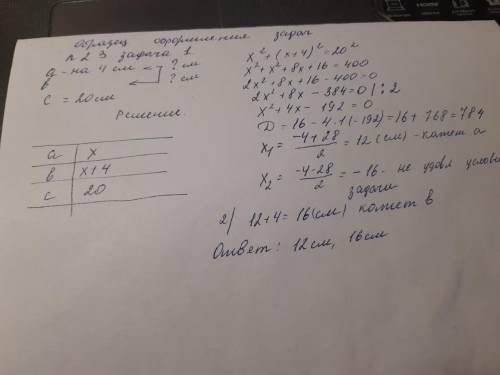 Образец оформления задач
п 23 задача 1
а - на 4 см < ? см
в ? см
с = 20 см
Решение.
а | х
в | х+4
с | 20
x² + (x+4)² = 20²
x² + x² + 8x + 16 = 400
2x² + 8x + 16 - 400 = 0
2x² + 8x - 384 = 0 | : 2
x² + 4x - 192 = 0
D = 16 - 4·1·(-192) = 16 + 768 = 784
x₁ = (-4+28)/2 = 12 (см) - катет а
x₂ = (-4-28)/2 = -16 - не удовл услови
задачи
2) 12+4 = 16 (см) катет в
Ответ: 12 см, 16 см